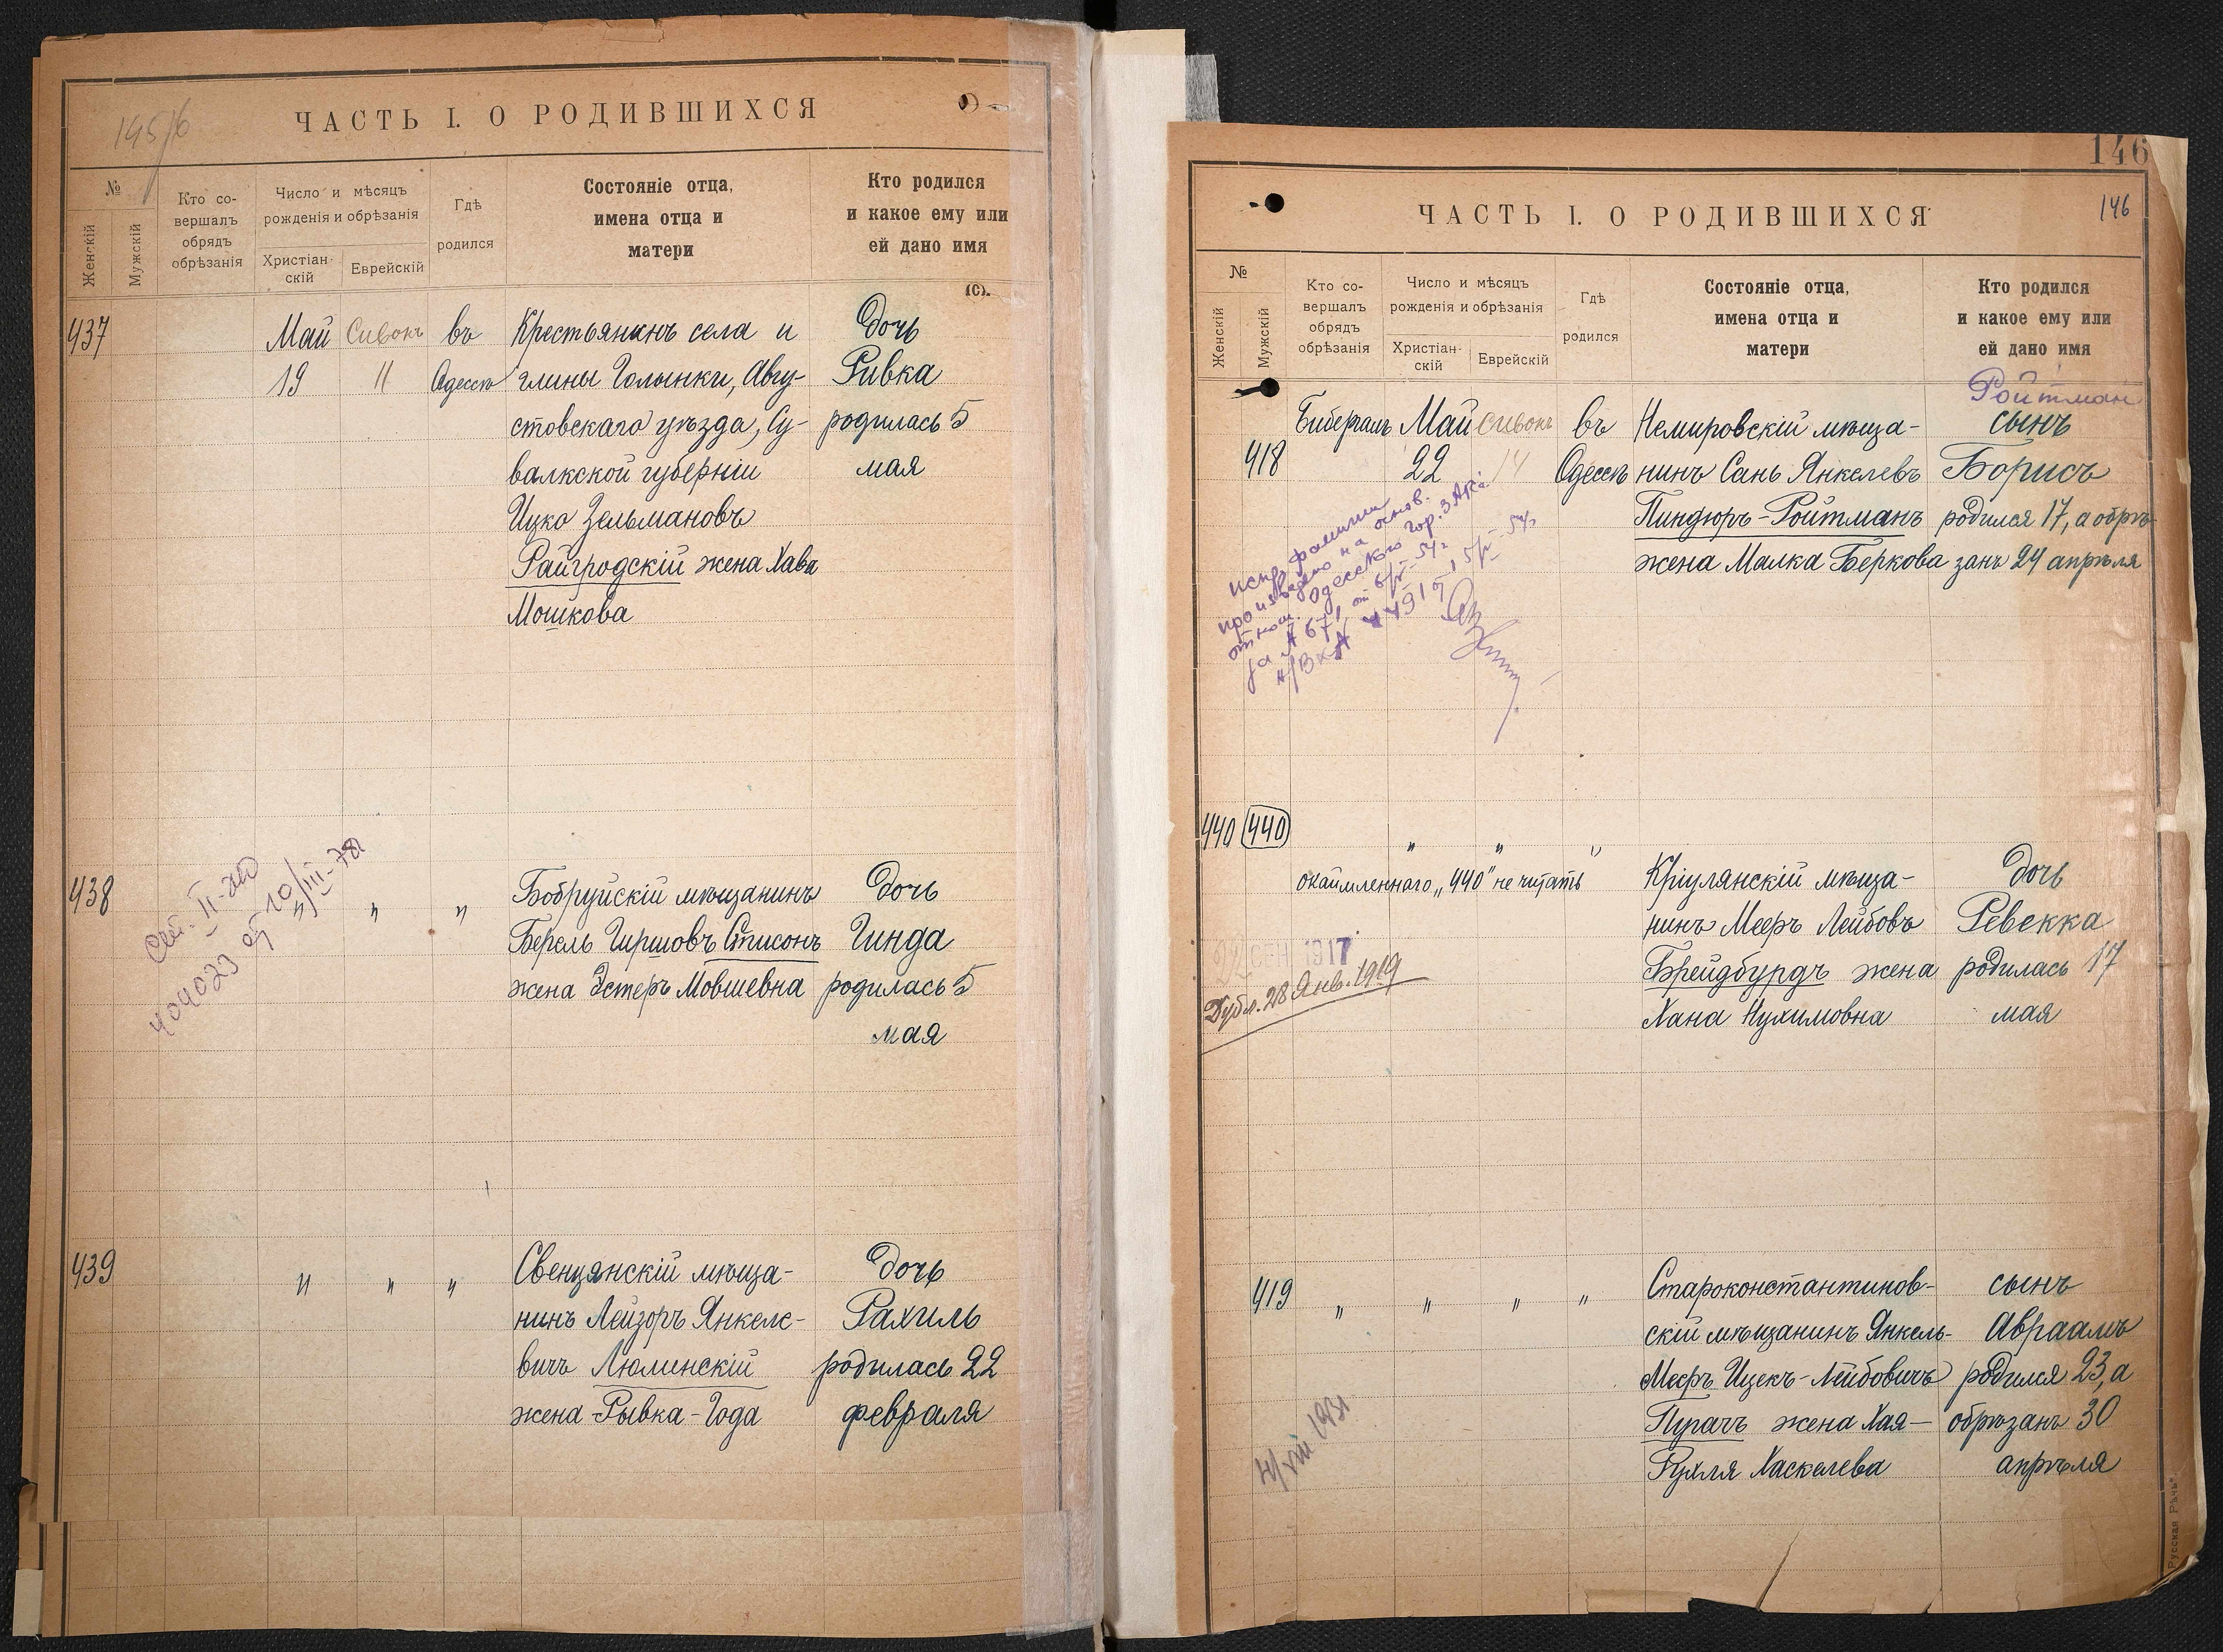 195/6
ЧАСТЬ I. О РОДИВШИХСЯ
№
Женскій
Мужскій
Кто со-
вершалъ
обрядъ
обрѣзанія
Число и мѣсяцъ
рожденія и обрѣзанія
Христіан-
скій
Еврейскій
Гдѣ
родился
Состояніе отца,
имена отца и
матери
Кто родился
и какое ему или
ей дано имя
437
Май Сивонъ въ
19 11 Одессѣ
Крестьянинъ села и
глины Голынки, Авгу-
стовскаго уѣзда, Су-
валкской губерніи
Ицко Зельмановъ
Райгродскій жена Хава
Мошкова
дочь
Ривка
родилась 5
мая
438
" " "
Бобруйскій мѣщанинъ
Берель Гиршовъ Списонъ
жена Эстеръ Мовшевна
дочь
Гинда
родилась 5
мая
439
" " "
Свенцянскій мѣща-
нинъ Лейзоръ Янкеле-
вичъ Люминскій
жена Рывка-Года
дочь
Рахиль
родилась 22
февраля
146
146
ЧАСТЬ I. О РОДИВШИХСЯ
№
Женскій
Мужскій
Кто со-
вершалъ
обрядъ
обрѣзанія
Число и мѣсяцъ
рожденія и обрѣзанія
Христіан-
скій
Еврейскій
Гдѣ
родился
Состояніе отца,
имена отца и
матери
Кто родился
и какое ему или
ей дано имя
Ройтман
418
Бибергалъ Май Сивонъ въ
22 14 Одессѣ
Немировскій мѣща-
нинъ Сань Янкелевъ
Пиндюръ-Ройтманъ
жена Малка Беркова
сынъ
Борисъ
родился 17, а обрѣ-
занъ 24 апрѣля
испр. фамилии
произведено на основ.
отнош. Одесского Гор. ЗАГС
440 440
" " "
окаймленнаго „440" не читать
СЕН 1917
Дубл. 28 Янв. 1919
Кріулянскій мѣща-
нинъ Мееръ Лейбовъ
Брейдбурдъ жена
Хана Нухимовна
дочь
Ревекка
родилась 17
мая
419
" " " "
Староконстантинов-
скій мѣщанинъ Янкель-
Мееръ Ицекъ-Лейбовичъ
Пугачъ жена Хая-
Рухля Хаскелева
сынъ
Авраамъ
родился 23, а
обрѣзанъ 30
апрѣля
VIII 1931
„Русская Рѣчь"